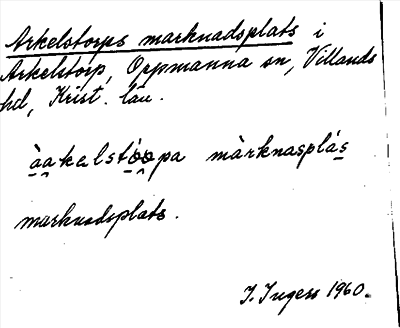 Arkelstorps marknadsplats i
Arkelstorp, Oppmanna sn, Villands
hd, Krist. län.
àakelstópa màrknasplás
marknadsplats.
J. Ingers 1960.